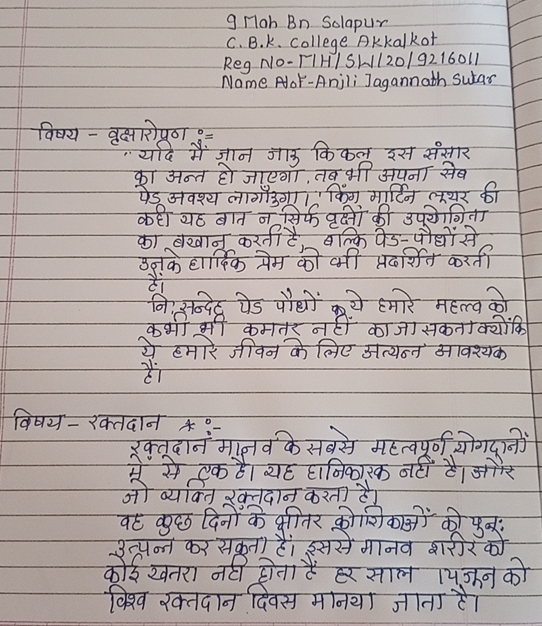 9 Mah Bn Solapur
C.B.K. College Akkalkot
Reg No-MH/SW/20/9216011
Name Anjli Jagannath Sutar
विषय - वृक्षारोपण :=
"यदि मैं जान जाउ कि कल इस संसार
का अन्त हो जाएगा, तब भी अपना सेब
पेड अवश्य लागाँउगा।" किंग मार्टिन लूथर की
कही यह बात न सिर्फ वृक्षों की उपयोगिता
का बखान करती है, बाल्कि पेड-पौधों से
उनके हार्दिक प्रेम को भी प्रदर्शित करती
है।
नि:सन्देह पेड पौधों ये हमारे महत्व को
कभी भी कमतर नहीं का जा सकता क्योंकि
ये हमारे जीवन के लिए अत्यन्त आवश्यक
हैं।
विषय - रक्तदान * :-
रक्तदान मानव के सबसे महत्वपूर्ण योगदानों
में से एक है। यह हानिकारक नहीं है। और
जो व्यक्ति रक्तदान करता है।
वह कुछ दिनों के भीतर कोशिकाओं को पुन:
उत्पन्न कर सकता है। इससे मानव शरीर को
कोई खतरा नही होता है हर साल 14 जून को
विश्व रक्तदान दिवस मानया जाता है।